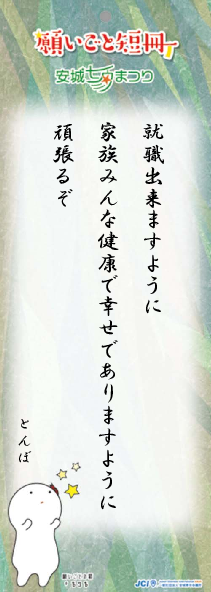 願いごと短冊
安城七夕まつり
就職出来ますように
家族みんな健康で幸せでありますように
頑張るぞ
とんぼ
JCI